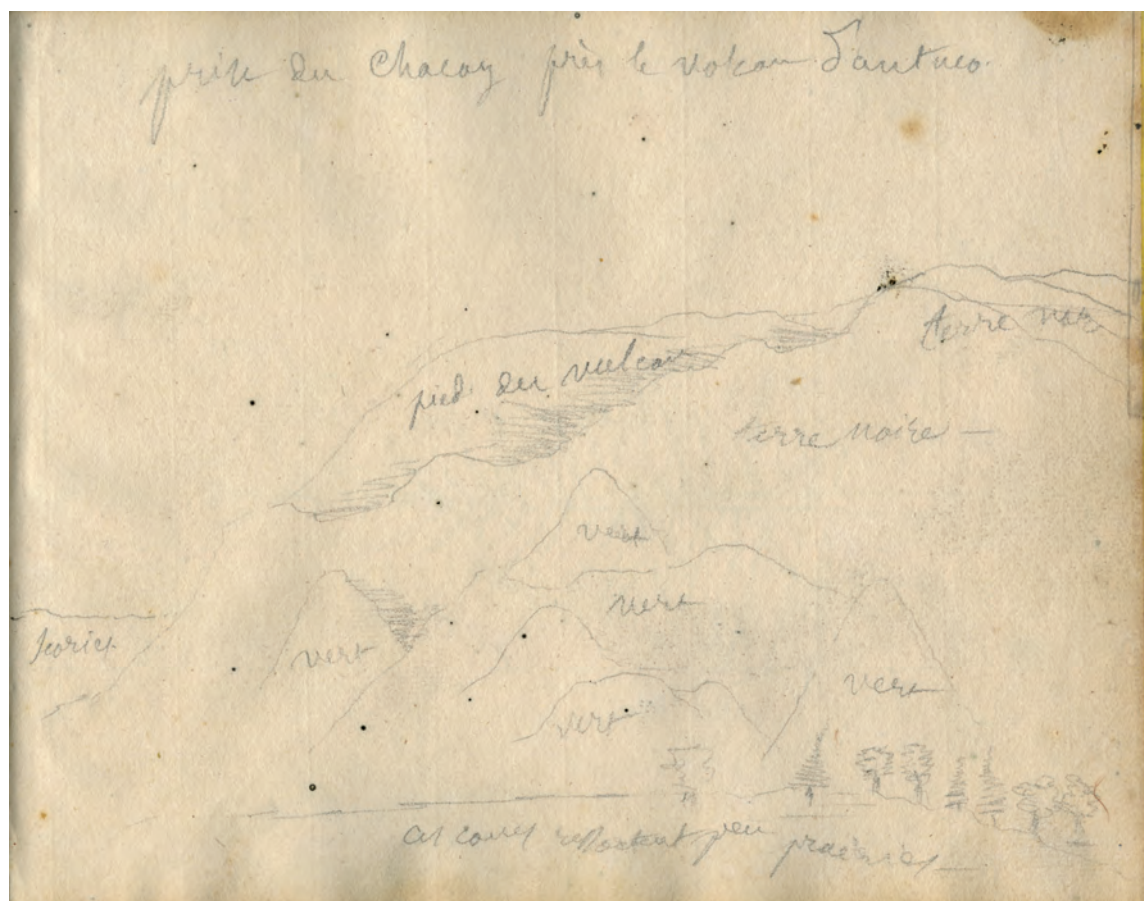 prise du Chacay près le volcan d'antuco.
terre noir
pied du vulcan
terre noire —
vert
vert
scories
vert
vert
vert
ces cones ressortent peu prairies —